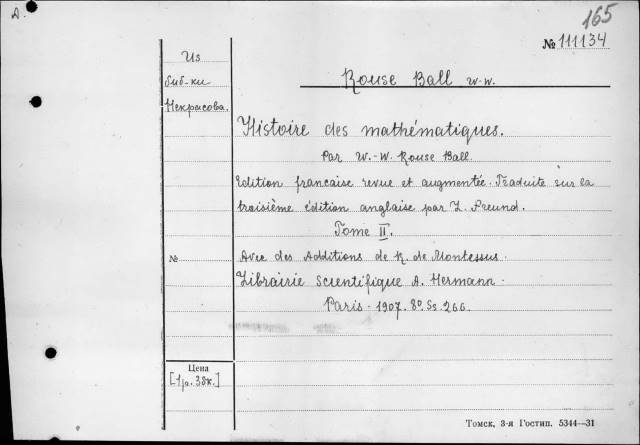 A.
165
№ 111134
Из
биб-ки
Некрасова.
Rouse Ball W.-W.
Histoire des mathématiques.
Par W.-W. Rouse Ball.
Edition francaise revue et augmentée. Traduite sur la
troisième édition anglaise par L. Freund.
Tome II.
№
Avec des Additions de R. de Montessus.
Librairie Scientifique A. Hermann.
Paris - 1907. 8º. Ss. 266.
Цена
[1р. 38к.]
Томск, 3-я Гостип. 5344—31